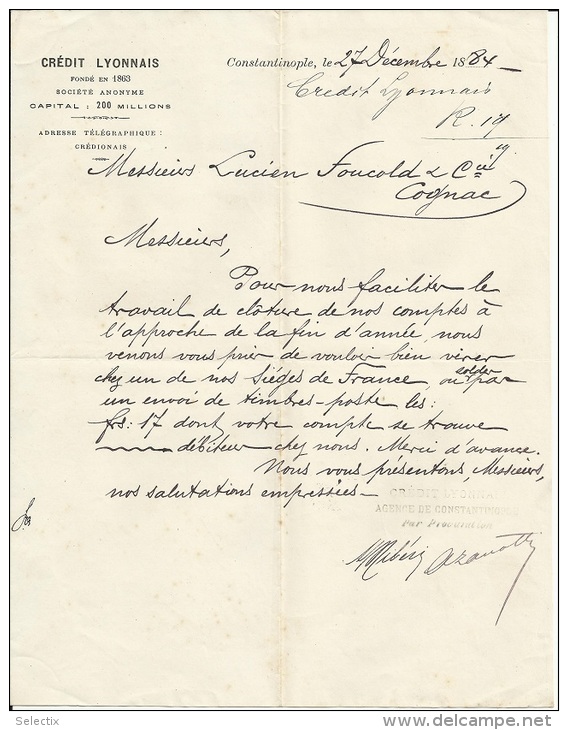 CRÉDIT LYONNAIS
FONDÉ EN 1863
SOCIÉTÉ ANONYME
CAPITAL : 200 MILLIONS
ADRESSE TÉLÉGRAPHIQUE :
CRÉDIONAIS
Constantinople, le 27 Décembre 1884
Credit Lyonnais
R. 19
Messieurs Lucien Foucold & Cie
Cognac
Messieurs,
Pour nous faciliter le
travail de clôture de nos comptes à
l'approche de la fin d'année, nous
venons vous prier de vouloir bien virer
chez un de nos Sièges de France, ou solder par
un envoi de timbres-poste les :
frs: 17 dont votre compte se trouve
débiteur chez nous. Merci d'avance.
Nous vous présentons, Messieurs,
nos salutations empressées
CRÉDIT LYONNAIS
AGENCE DE CONSTANTINOPLE
Par Procuration
Selectix
www.delcampe.net